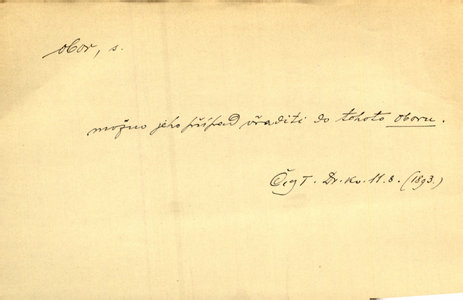 obor, s.
možno jeho případ vřaditi do tohoto oboru.
Čas T. Dr. kv. 11. 3. (1893.)